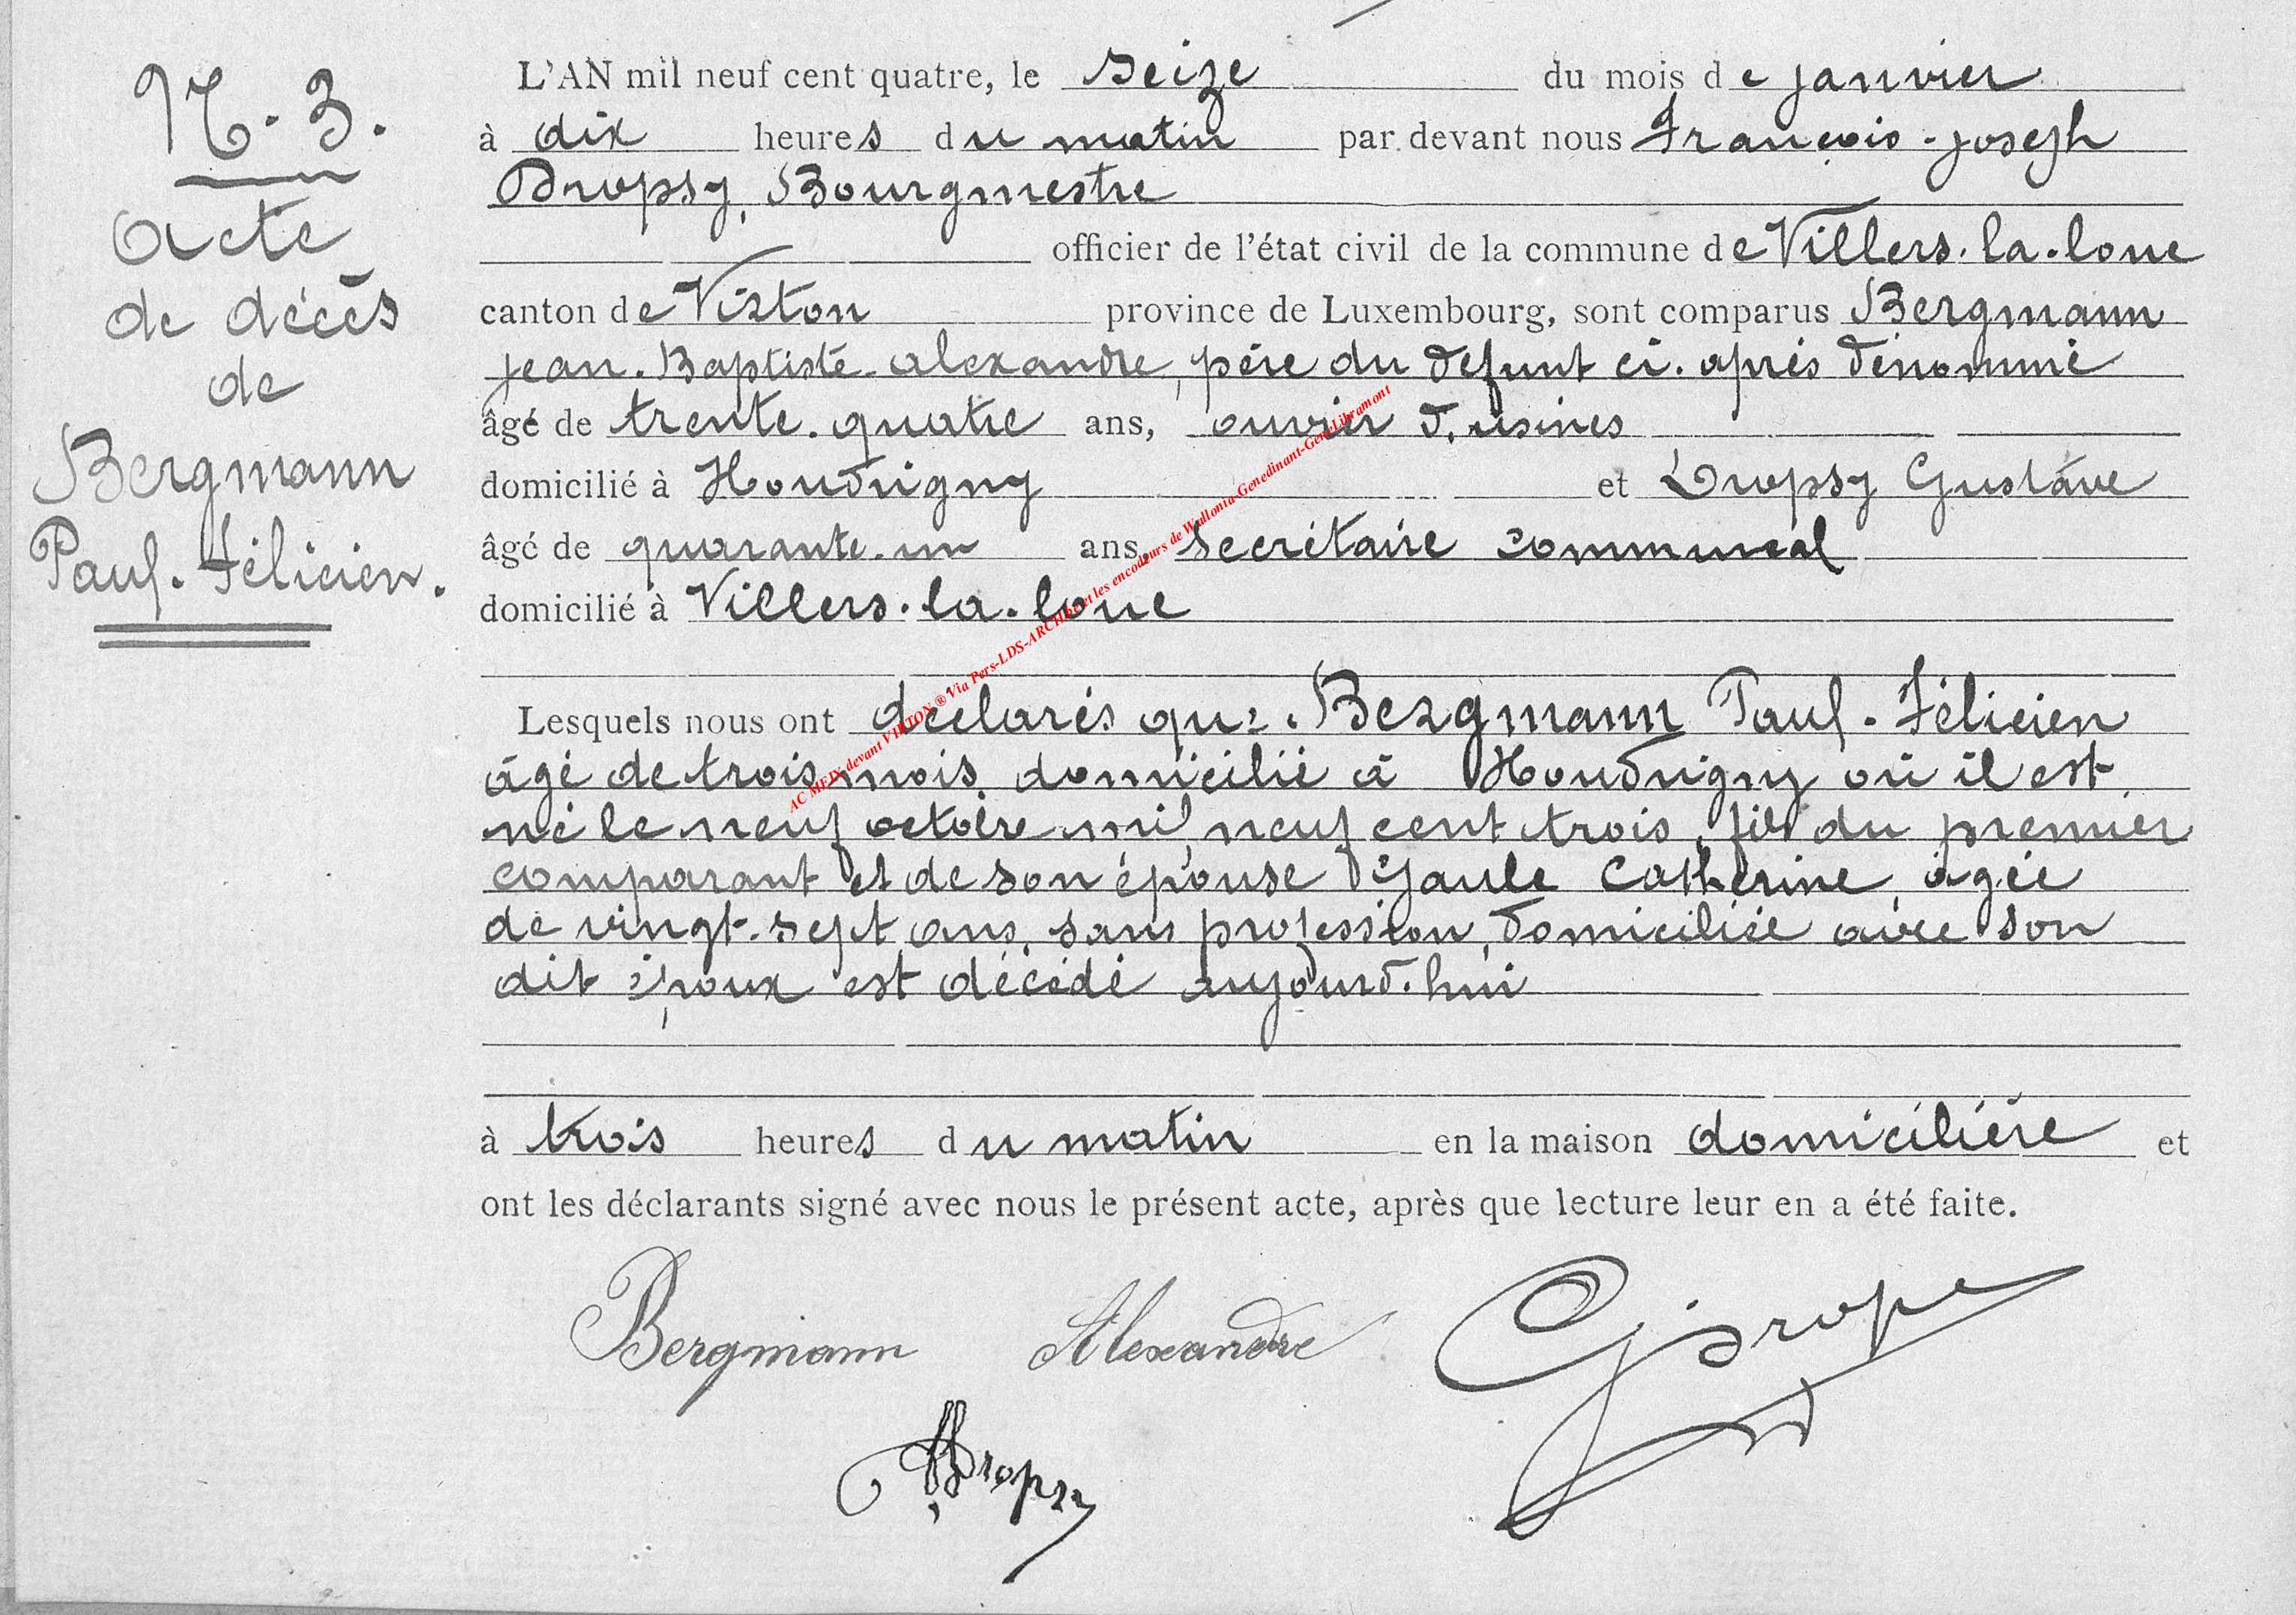 N. 3.
acte
de décès
de
Bergmann
Paul. Félicien.
L'AN mil neuf cent quatre, le seize du mois de janvier
à dix heures du matin par devant nous François-joseph
Dropsy, Bourgmestre
officier de l'état civil de la commune de Villers-la-loue
canton de Virton province de Luxembourg, sont comparus Bergmann
jean-Baptiste-alexandre, père du défunt ci-après dénommé
âgé de trente-quatre ans, ouvrier d'usines
domicilié à Houdrigny et Dropsy Gustave
âgé de quarante-un ans, secrétaire communal
domicilié à Villers-la-loue
Lesquels nous ont déclarés que Bergmann Paul-Félicien
âgé de trois mois, domicilié à Houdrigny où il est
né le neuf octobre mil neuf cent trois, fils du premier
comparant et de son épouse Gaule Catherine, âgée
de vingt-sept ans, sans profession, domiciliée avec son
dit époux est décédé aujourd'hui
à trois heures du matin en la maison domicilière et
ont les déclarants signé avec nous le présent acte, après que lecture leur en a été faite.
Bergmann Alexandre
Dropsy
AC MEIX devant VIRTON ® Via Pers-LDS-ARCHIVE et les encodeurs de Wallonia-Genedinant-GeneLibramont